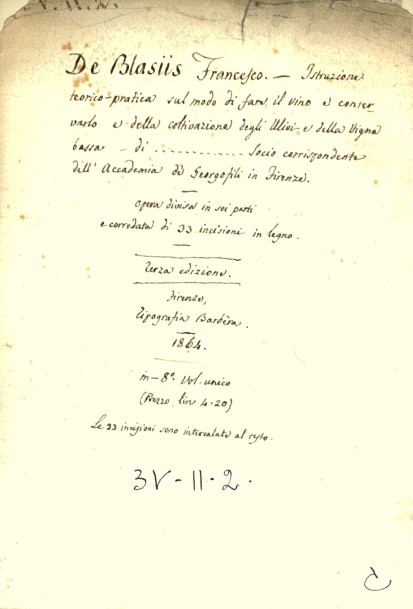 V. 11. 2.
De Blasiis Francesco. — Istruzione
teorico-pratica sul modo di fare il vino e conser-
varlo e della coltivazione degli Ulivi e della Vigna
bassa - di ............ Socio corrispondente
dell' Accademia de Georgofili in Firenze.
Opera divisa in sei parti
e corredata di 33 incisioni in legno.
Terza edizione.
Firenze,
Tipografia Barbèra.
1864.
in-8º. Vol. unico
(Prezzo, lire 4.20)
Le 33 incisioni sono intercalate al testo.
3V-11-2.